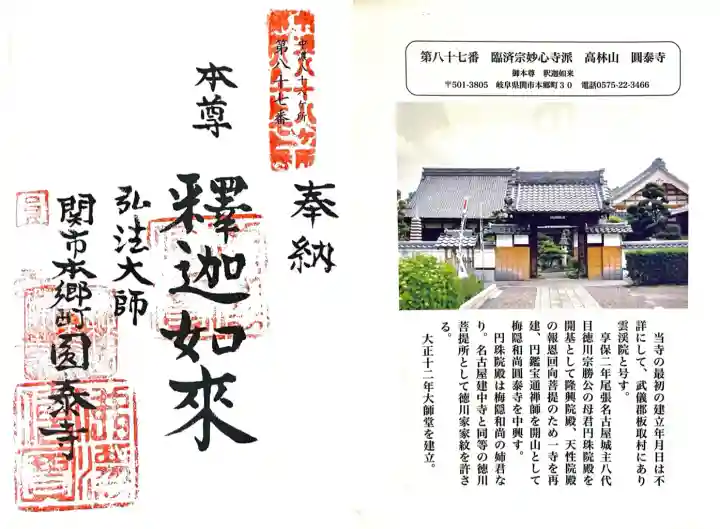 中濃八十八ケ所
第八十七番
奉納
本尊
釋迦如來
弘法大師
関市本郷町圓泰寺
第八十七番　臨済宗妙心寺派　高林山　圓泰寺
御本尊　釈迦如来
〒501-3805　岐阜県関市本郷町３０　電話0575-22-3466
当寺の最初の建立年月日は不
詳にして、武儀郡板取村にあり
雲渓院と号す。
享保二年尾張名古屋城主八代
目徳川宗勝公の母君円珠院殿を
開基として隆興院殿、天性院殿
の報恩回向菩提のため一寺を再
建、円鑑宝通禅師を開山として
梅隠和尚圓泰寺を中興す。
円珠院殿は梅隠和尚の姉君な
り。名古屋建中寺と同等の徳川
菩提所として徳川家家紋を許さ
る。
大正十二年大師堂を建立。